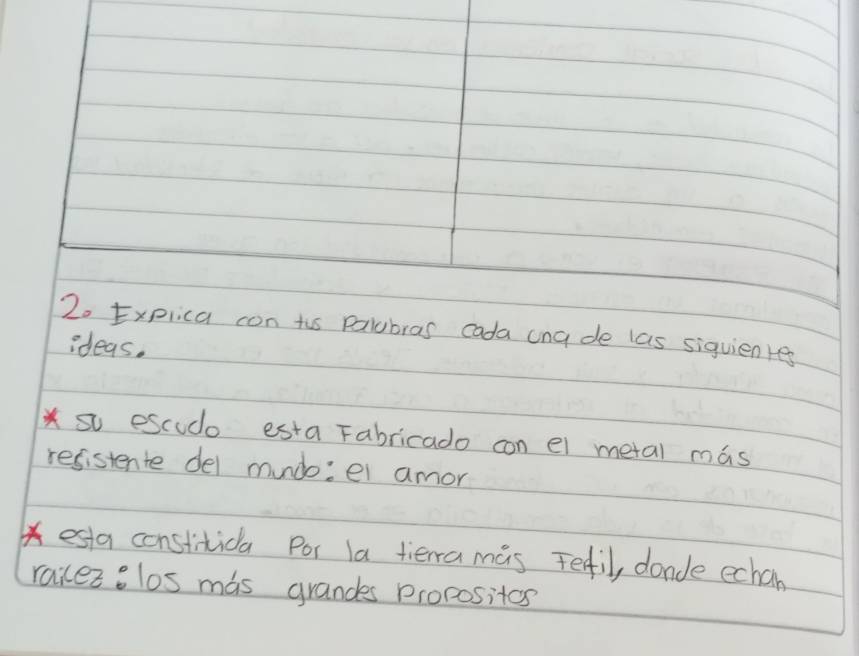 2. Explica con tus palabras cada una de las siguientes
ideas.
* su escudo esta Fabricado con el metal más
resistente del mundo: el amor
* esta constituida Por la tierra más Fertil, donde echan
raicez: los más grandes Propositos